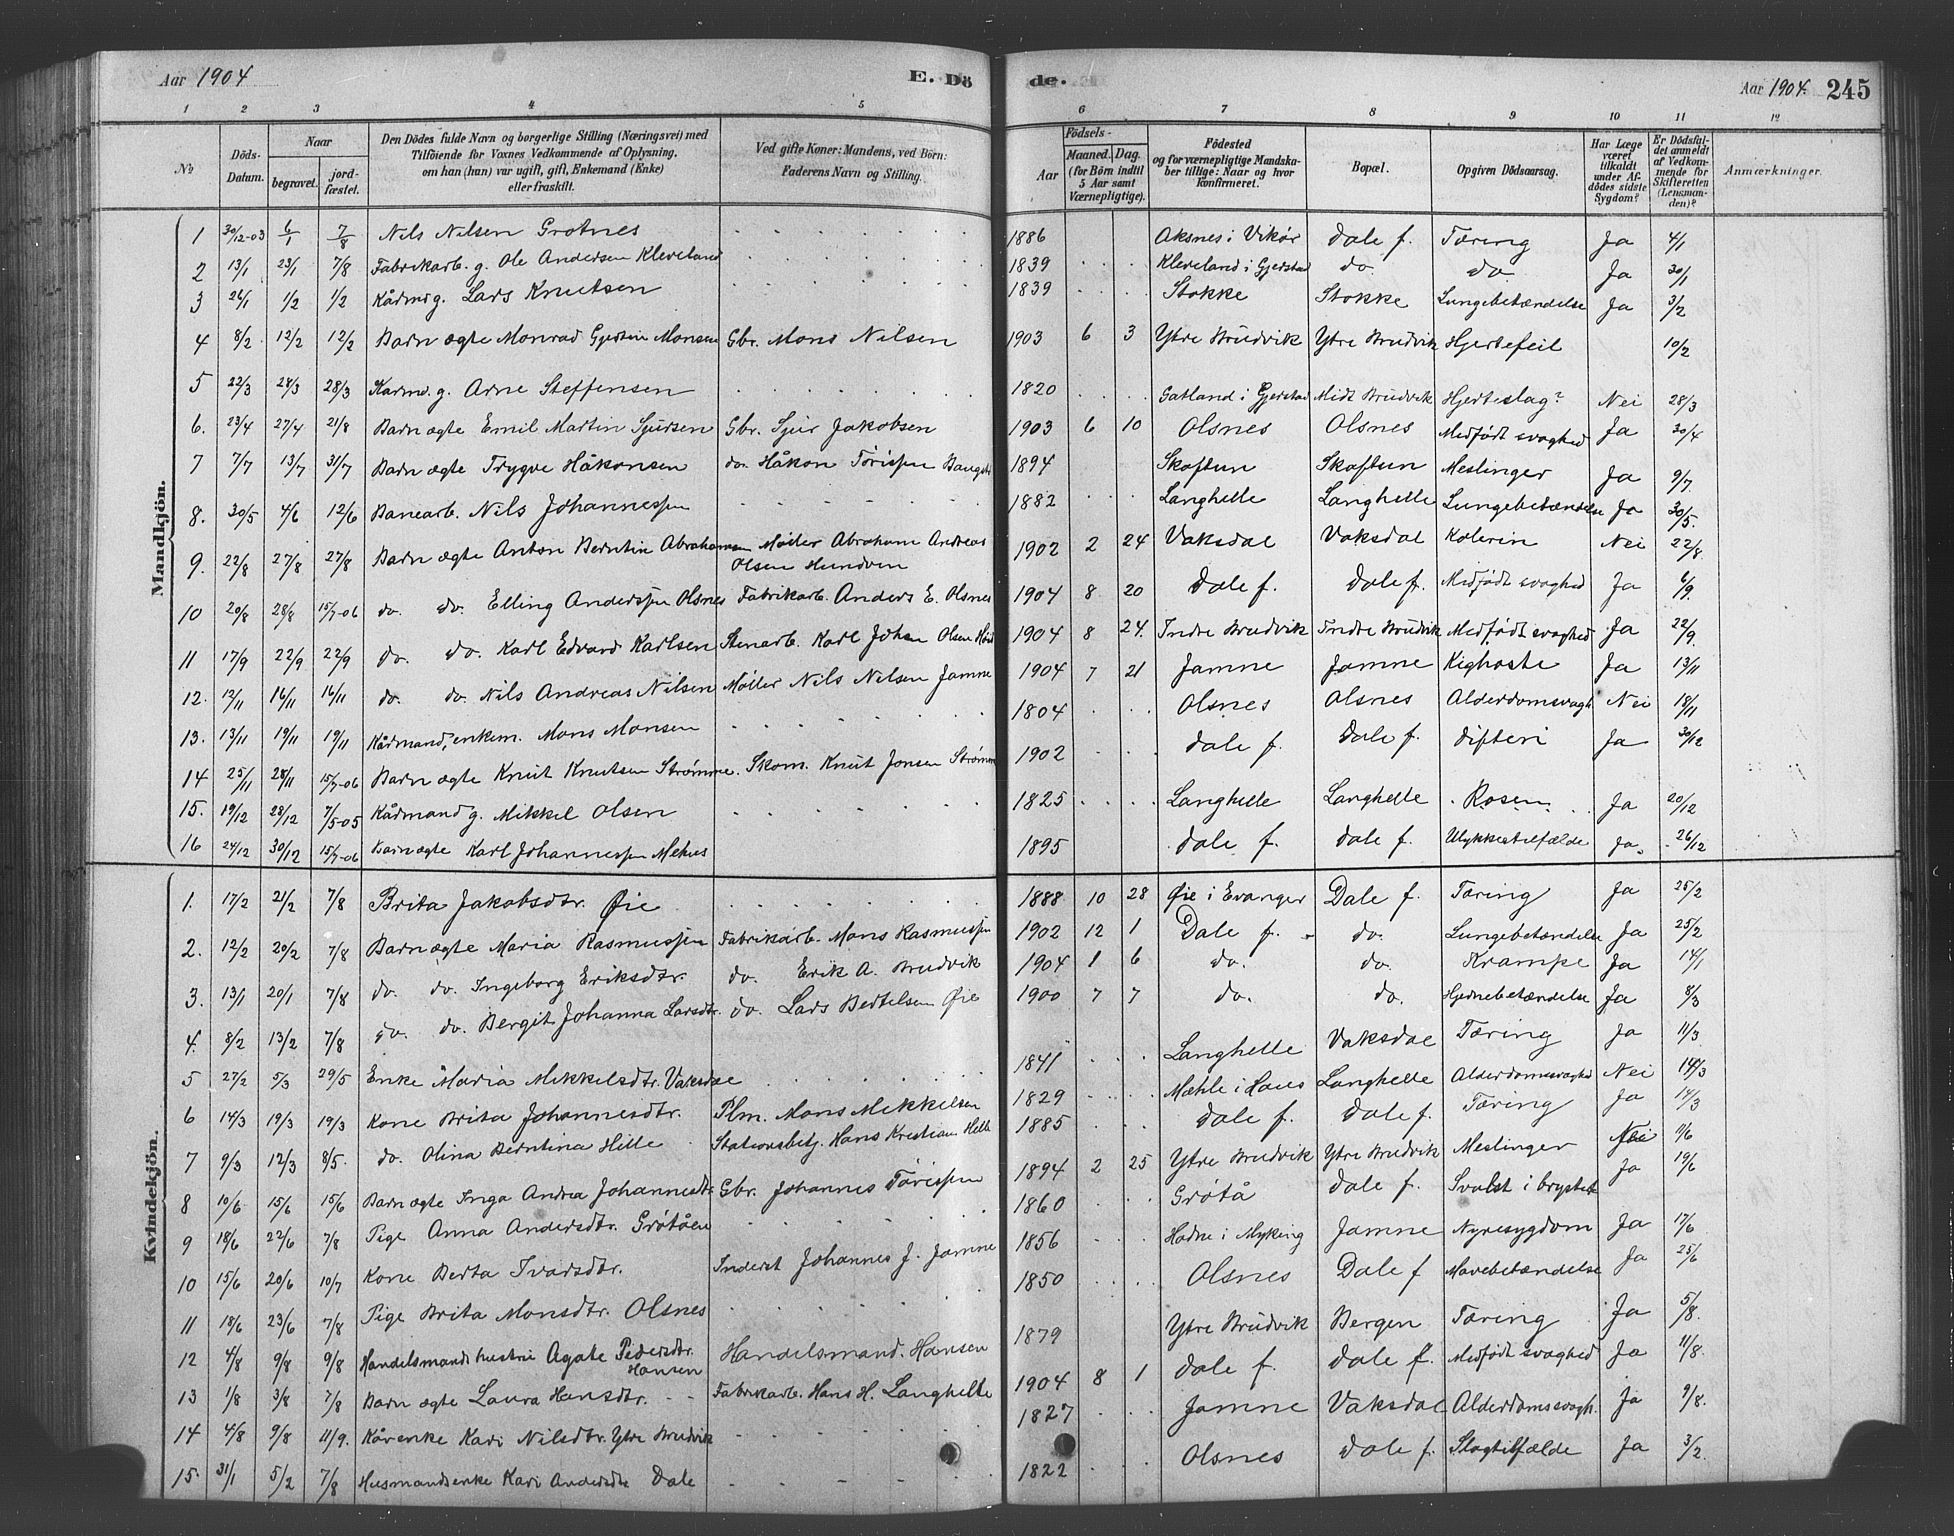 Aar 1904 E. Dö
de. Aar 1904. 245
1 2 3 4 5
6 7 8 9 10 11 12
№
Döds-Datum.
Naar
begravet.
jord-fæstet.
Den Dödes fulde Navn og borgerlige Stilling (Næringsvei) med
Tilföiende for Voxnes Vedkommende af Oplysning,
om han (hun) var ugift, gift, Enkemand (Enke)
eller fraskilt.
Ved gifte Koner: Mandens, ved Börn:
Faderens Navn og Stilling.
Födsels-
Aar
Maaned. Dag.
(for Börn indtil
5 Aar samt
Værnepligtige).
Födested
og for værnepligtige Mandska-
ber tillige: Naar og hvor
konfirmeret.
Bopæl.
Opgiven Dödsaarsag.
Har Læge
været
tilkaldt
under Af-
dödes sidste
Sygdom?
Er Dödsfal-
det anmeldt
af Vedkom-
mende for
Skifteretten
(Lensman-
den)?
Anmærkninger.
Mandkjön.
1 30/12-03 6/1 7/8 Nils Nilsen Grotnes 1886 Aksnes i Vikør Dale f. Tæring Ja 4/1
2 13/1 23/1 7/8 Fabrikarb. g. Ole Andersen Kleveland 1839 Kleveland i Gjerstad do do Ja 30/1
3 26/1 1/2 1/2 Kårmd g. Lars Knutsen 1839 Stokke Stokke Lungebetændelse Ja 3/2
4 8/2 12/2 12/2 Barn ægte Monrad Gjertin Monsen Gbr. Mons Nilsen 1903 6 3 Ytre Brudvik Ytre Brudvik Hjertefeil 10/2
5 22/3 28/3 28/3 Karmd. g. Arne Steffensen 1820 Gatland i Gjerstad Midt Brudvik Hjerteslag? Nei 28/3
6. 23/4 27/4 21/8 Barn ægte Emil Martin Sjursen Gbr. Sjur Jakobsen 1903 6 10 Olsnes Olsnes Medfødt svaghed Ja 30/4
7 7/7 13/7 31/7 Barn ægte Trygve Håkonsen do. Håkon Torissen 1894 Skaftun Skaftun Meslinger Ja 9/7
8. 30/5 4/6 12/6 Banearb. Nils Johannessen 1882 Langhelle Langhelle Lungebetændelse Ja 30/5.
9. 22/8 27/8 27/8 Barn ægte Anton Berntin Abrahamsen Møller Abraham Andreas
Olsen Hundven 1902 2 24 Vaksdal Vaksdal Kolerin Nei 22/8
10 20/8 28/8 15/7-06 do. do. Elling Anderssen Olsnes Fabrikarb. Anders E. Olsnes 1904 8 20 Dale f. Dale f. Medfødt svaghed Ja 6/9.
11 17/9 22/9 22/9 do. do. Karl Edvard Karlsen Stenarb. Karl Johan Olsen 1904 8 24. Indre Brudvik Indre Brudvik Medfødt svaghed Ja 22/9.
12. 12/11 16/11 16/11 do. do. Nils Andreas Nilsen Møller Nils Nilsen Jamne 1904 7 21 Jamne Jamne Kighoste Ja 13/11
13. 13/11 19/11 19/11 Kårmand, enkem. Mons Monsen 1804 Olsnes Olsnes Alderdomsvagh Nei 18/11
14 25/11 28/11 15/7-06 Barn ægte Knut Knutsen Strømme. Skom. Knut Jonsen Strømme 1902 Dale f. Dale f. Difteri Ja 30/12
15. 19/12 28/12 7/5-05 Kårmand g. Mikkel Olsen 1825 Langhelle Langhelle Rosen Ja 20/12
16 24/12 30/12 15/7-06 Barn ægte Karl Johannessen Mehus 1895 Dale f. Dale f. Ulykkestilfælde Ja. 26/12
Kvindekjön.
1. 17/2 21/2 7/8 Brita Jakobsdtr. Øie 1888 10 28 Øie i Evanger Dale f. Tæring Ja 25/2
2. 12/2 20/2 7/8 Barn ægte Maria Rasmussen Fabrikarb. Mons Rasmussen 1902 12 1 Dale f. do. Lungebetændelse Ja 25/2
3. 13/1 20/1 7/8 do. do. Ingeborg Eriksdtr. do. Erik A. Brudvik 1904 1 6 do. do. Krampe Ja 14/1
4. 8/2 13/2 7/8 do. do. Bergit Johanna Larsdtr. do. Lars Bertelsen Øie 1900 7 7 do. do. Hjernebetændelse Ja 8/3
5 27/2 5/3 29/5 Enke Maria Mikkelsdtr. Vaksdal 1841 Langhelle Vaksdal Tæring Ja 11/3
6 14/3 19/3 19/3 Kone Brita Johannesdtr. Plm. Mons Mikkelsen 1829 Mæhle i Haus Langhelle Alderdomssvaghed Nei 14/3
7 9/3 12/3 8/5. do. Olina Berntina Helle Stationsbetj. Hans Kristian Helle 1885 Dale f. Dale f. Tæring Ja 14/3
8 10/6 15/6 15/6 Barn ægte Inga Andrea Johannesdtr Gbr. Johannes Torissen 1894 2 25 Ytre Brudvik Ytre Brudvik Meslinger Nei
9 18/6 22/6 7/8 Pige Anna Andersdtr. Grøtåen 1860 Grøtå Dale f. Svulst i brystet Ja 19/6
10 15/6 20/6 10/7 Kone Berta Ivarsdtr. Inderst Johannes J. Jamne 1856 Hadne i Myking Jamne Nyresygdom Ja 17/6
11 18/6 23/6 7/8 Pige Brita Monsdtr. Olsnes 1850 Olsnes Dale f Mavebetændelse Ja 25/6
12 4/8 9/8 9/8 Handelsmands hustru Agate Pedersdtr.
Hansen Handelsmand. Hansen 1879 Ytre Brudvik Bergen Tæring Ja 5/8.
13 1/8 3/8 7/8 Barn ægte Laura Hansdtr. Fabrikarb. Hans H. Langhelle 1904 8 1 Dale f. Dale f. Medfødt svaghed Ja 11/8.
14 4/8 9/8 11/9. Kårenke Kari Nilsdtr. Ytre Brudvik 1827 Jamne Vaksdal Alderdomssvagh. Ja 9/8.
15. 31/1 5/2 7/8 Husmandsenke Kari Andersdtr Dale 1822 Olsnes Dale f. Slagtilfælde Ja 3/2